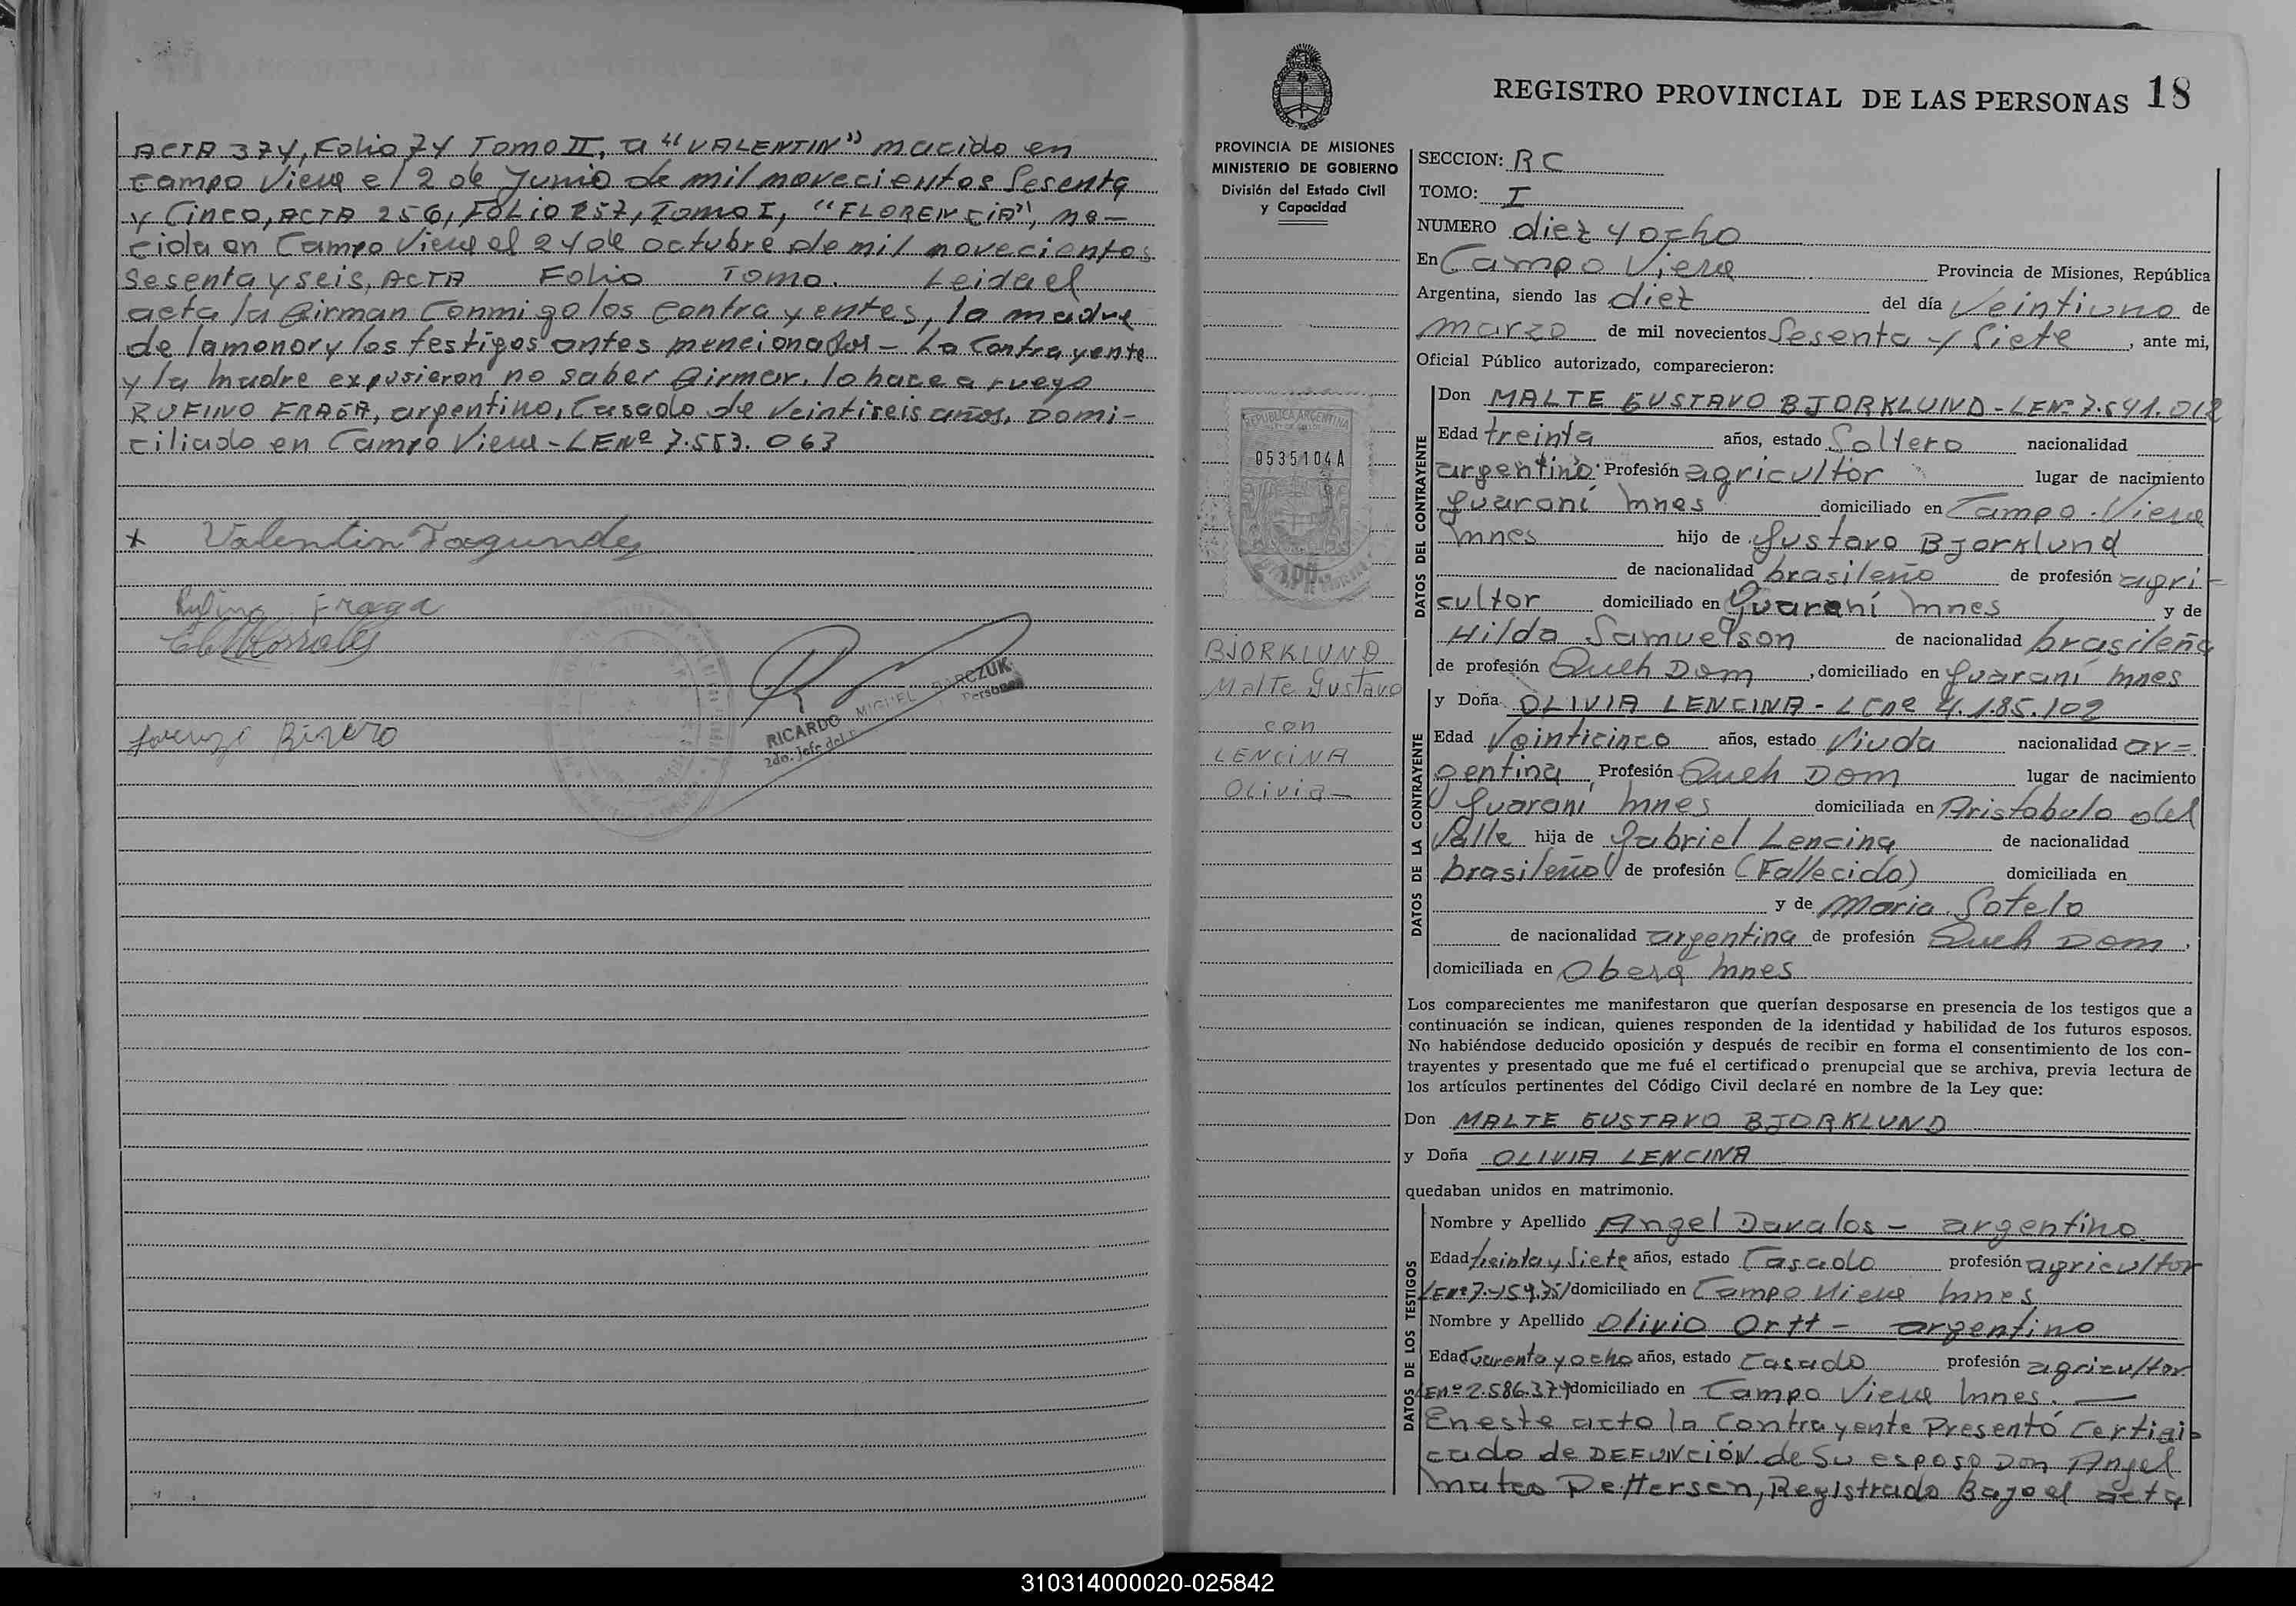 ACTA 374, Folio 74 Tomo II, a "VALENTIN" nacido en
Campo Viera el 2 de Junio de mil novecientos Sesenta
y Cinco, ACTA 256, FOLIO 257, Tomo I, "FLORENCIA", na-
cida en Campo Viera el 24 de octubre de mil novecientos
Sesenta y seis, ACTA Folio Tomo. Leida el
acta la firman Conmigo los Contrayentes, la madre
de la menor y los testigos antes mencionados - La Contrayente
y la madre expusieron no saber firmar, lo hace a ruego
RUFINO FRAGA, argentino, Casado de Veintiseis años, Domi-
ciliado en Campo Viera - LENº 7.553.063
x Valentin Fagundes
Rufino Fraga
Lorenzo
RICARDO MIGUEL BARCZUK
2do. Jefe del Personas
PROVINCIA DE MISIONES
MINISTERIO DE GOBIERNO
División del Estado Civil
y Capacidad
REPUBLICA ARGENTINA
0535104A
100
BJORKLUND
Malte Gustavo
con
LENCINA
Olivia -
REGISTRO PROVINCIAL DE LAS PERSONAS 18
SECCION: RC
TOMO: I
NUMERO diez y ocho
En Campo Viera Provincia de Misiones, República
Argentina, siendo las diez del día Veintiuno de
marzo de mil novecientos Sesenta y Siete, ante mi,
Oficial Público autorizado, comparecieron:
DATOS DEL CONTRAYENTE
Don MALTE GUSTAVO BJORKLUND - LENº 7.541.012
Edad treinta años, estado Soltero nacionalidad
argentino. Profesión agricultor lugar de nacimiento
Guaraní Mnes domiciliado en Campo Viera
Mnes hijo de Gustavo Bjorklund
de nacionalidad brasileño de profesión agri-
cultor domiciliado en Guaraní Mnes y de
Hilda Samuelson de nacionalidad brasileña
de profesión Queh Dom, domiciliado en Guaraní Mnes
DATOS DE LA CONTRAYENTE
y Doña OLIVIA LENCINA - LCNº 4.185.102
Edad Veinticinco años, estado Viuda nacionalidad ar=
gentina Profesión Queh Dom lugar de nacimiento
Guaraní Mnes domiciliada en Aristobulo del
Valle hija de Gabriel Lencina de nacionalidad
brasileño de profesión (Fallecido) domiciliada en
y de Maria Sotelo
de nacionalidad argentina de profesión Queh Dom,
domiciliada en Obera Mnes
Los comparecientes me manifestaron que querían desposarse en presencia de los testigos que a
continuación se indican, quienes responden de la identidad y habilidad de los futuros esposos.
No habiéndose deducido oposición y después de recibir en forma el consentimiento de los con-
trayentes y presentado que me fué el certificado prenupcial que se archiva, previa lectura de
los artículos pertinentes del Código Civil declaré en nombre de la Ley que:
Don MALTE GUSTAVO BJORKLUND
y Doña OLIVIA LENCINA
quedaban unidos en matrimonio.
DATOS DE LOS TESTIGOS
Nombre y Apellido Angel Davalos - argentino
Edad treinta y Siete años, estado Casado profesión agricultor
domiciliado en Campo Viera Mnes
Nombre y Apellido Olivio Ortt - argentino
Edad Cuarenta y ocho años, estado Casado profesión agricultor
LENº 2.586.379 domiciliado en Campo Viera Mnes. -
En este acto la Contrayente Presentó Certifi-
cado de DEFUNCIÓN de Su esposo Don Angel
Mateo Pettersen, Registrado Bajo el acta
310314000020-025842